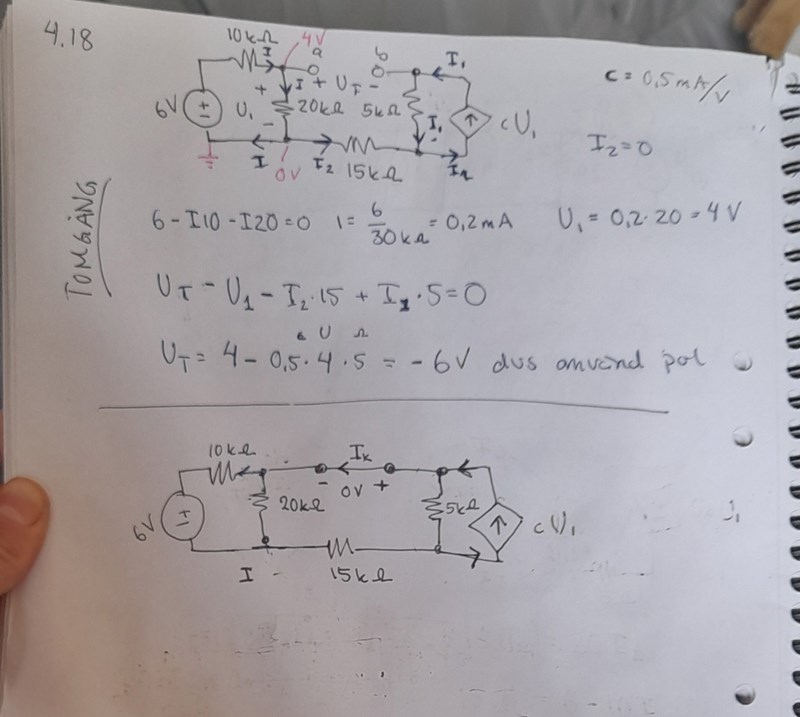 4.18
10kΩ 4V
I a b I₁
c = 0,5 mA/V
6V + U₁ - I + U_T - 20kΩ 5kΩ I₁ cU₁
I₂=0
I 0V I₂ 15kΩ I₁
TOMGÅNG
6 - I10 - I20 = 0 I = 6/30kΩ = 0,2mA U₁ = 0,2·20 = 4V
U_T - U₁ - I₂·15 + I₁·5 = 0
U_T = 4 - 0,5·4·5 = -6V dvs omvänd pol
10kΩ I_k
- 0V +
6V 20kΩ 5kΩ cU₁
I - 15kΩ